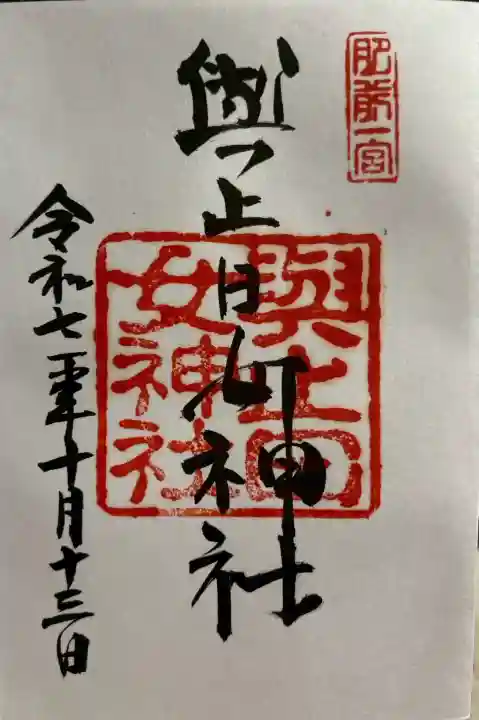 肥前一宮
與止日女神社
與止日女神社
令和七年十月十三日